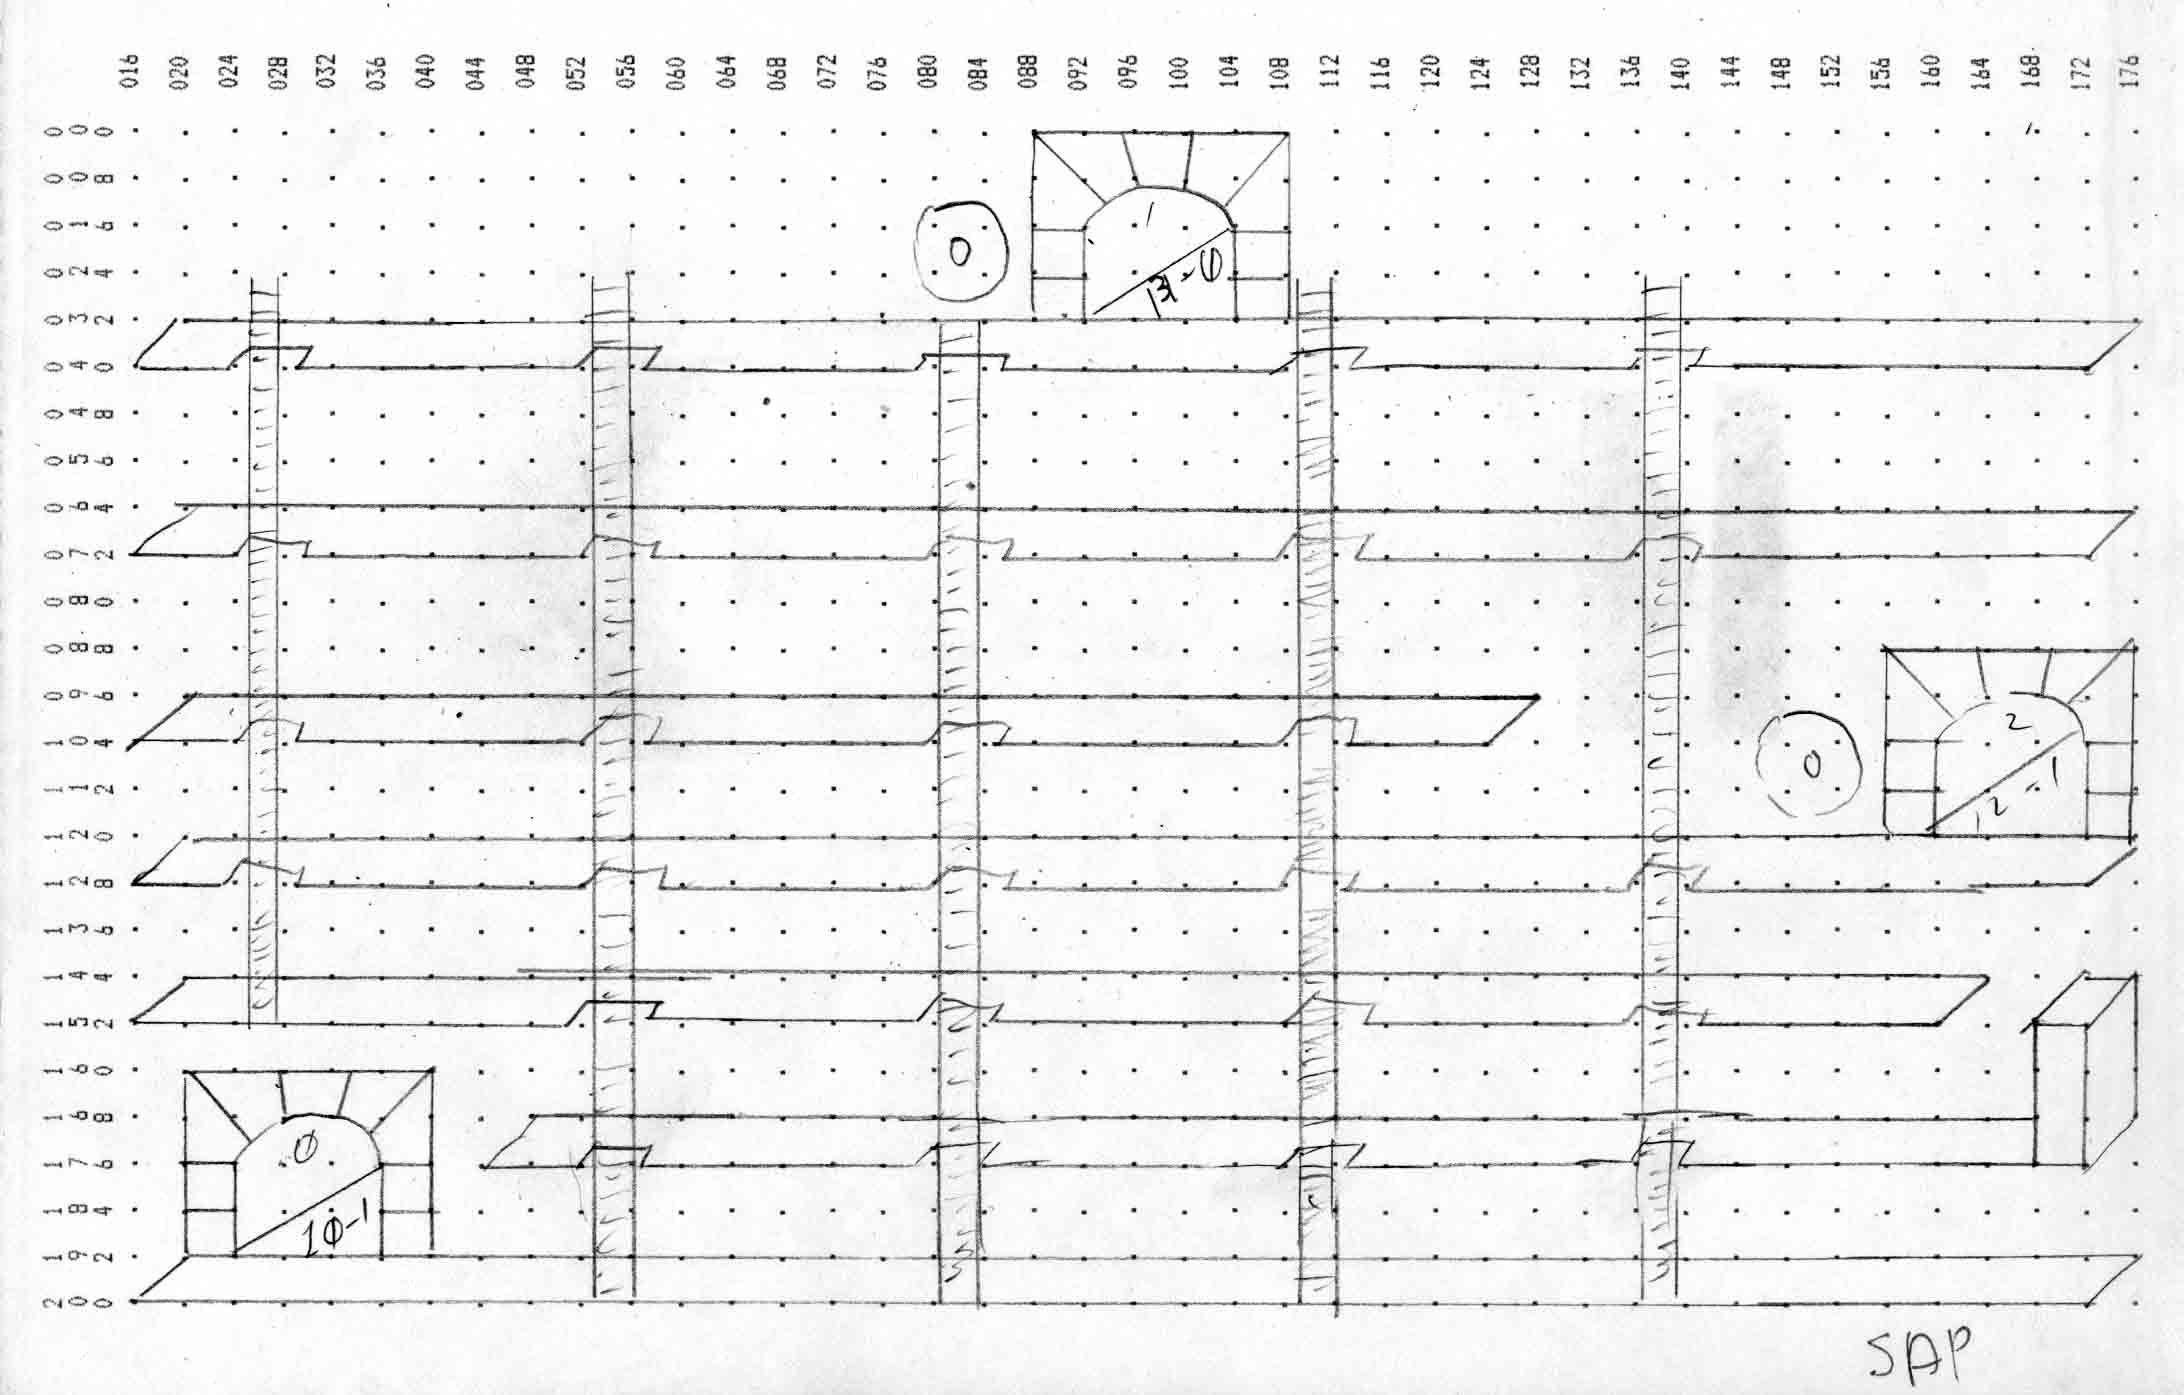 016 020 024 028 032 036 040 044 048 052 056 060 064 068 072 076 080 084 088 092 096 100 104 108 112 116 120 124 128 132 136 140 144 148 152 156 160 164 168 172 176
000
008
016
024
032
040
048
056
064
072
080
088
096
104
112
120
128
136
144
152
160
168
176
184
192
200
0
1
2
0
2-1
0
10-1
SAP